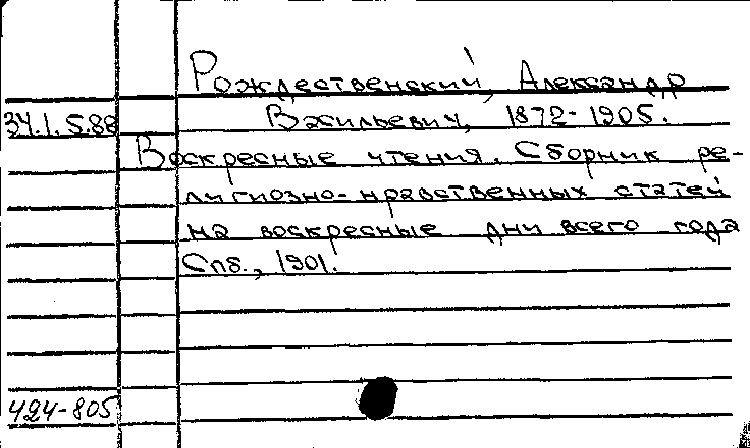 Рождественский, Александр
34.1.5.88 Васильевич, 1872-1905.
Воскресные чтения. Сборник ре-
лигиозно-нравственных статей
на воскресные дни всего года
Спб., 1901.
424-805